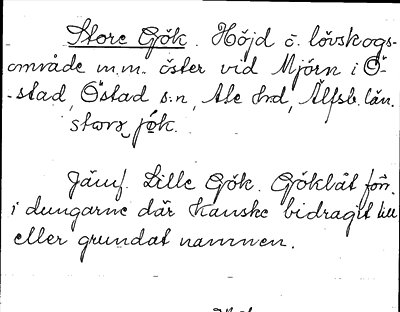 Store Gök. Höjd o. lövskogs-
område m.m. öster vid Mjörn i Ö-
-stad, Östad s:n, Ale hd, Älfsb. län.
storə jök.
Jämf. Lille Gök. Göklåt förr
i dungarne där kanske bidragit till
eller grundat namnen.